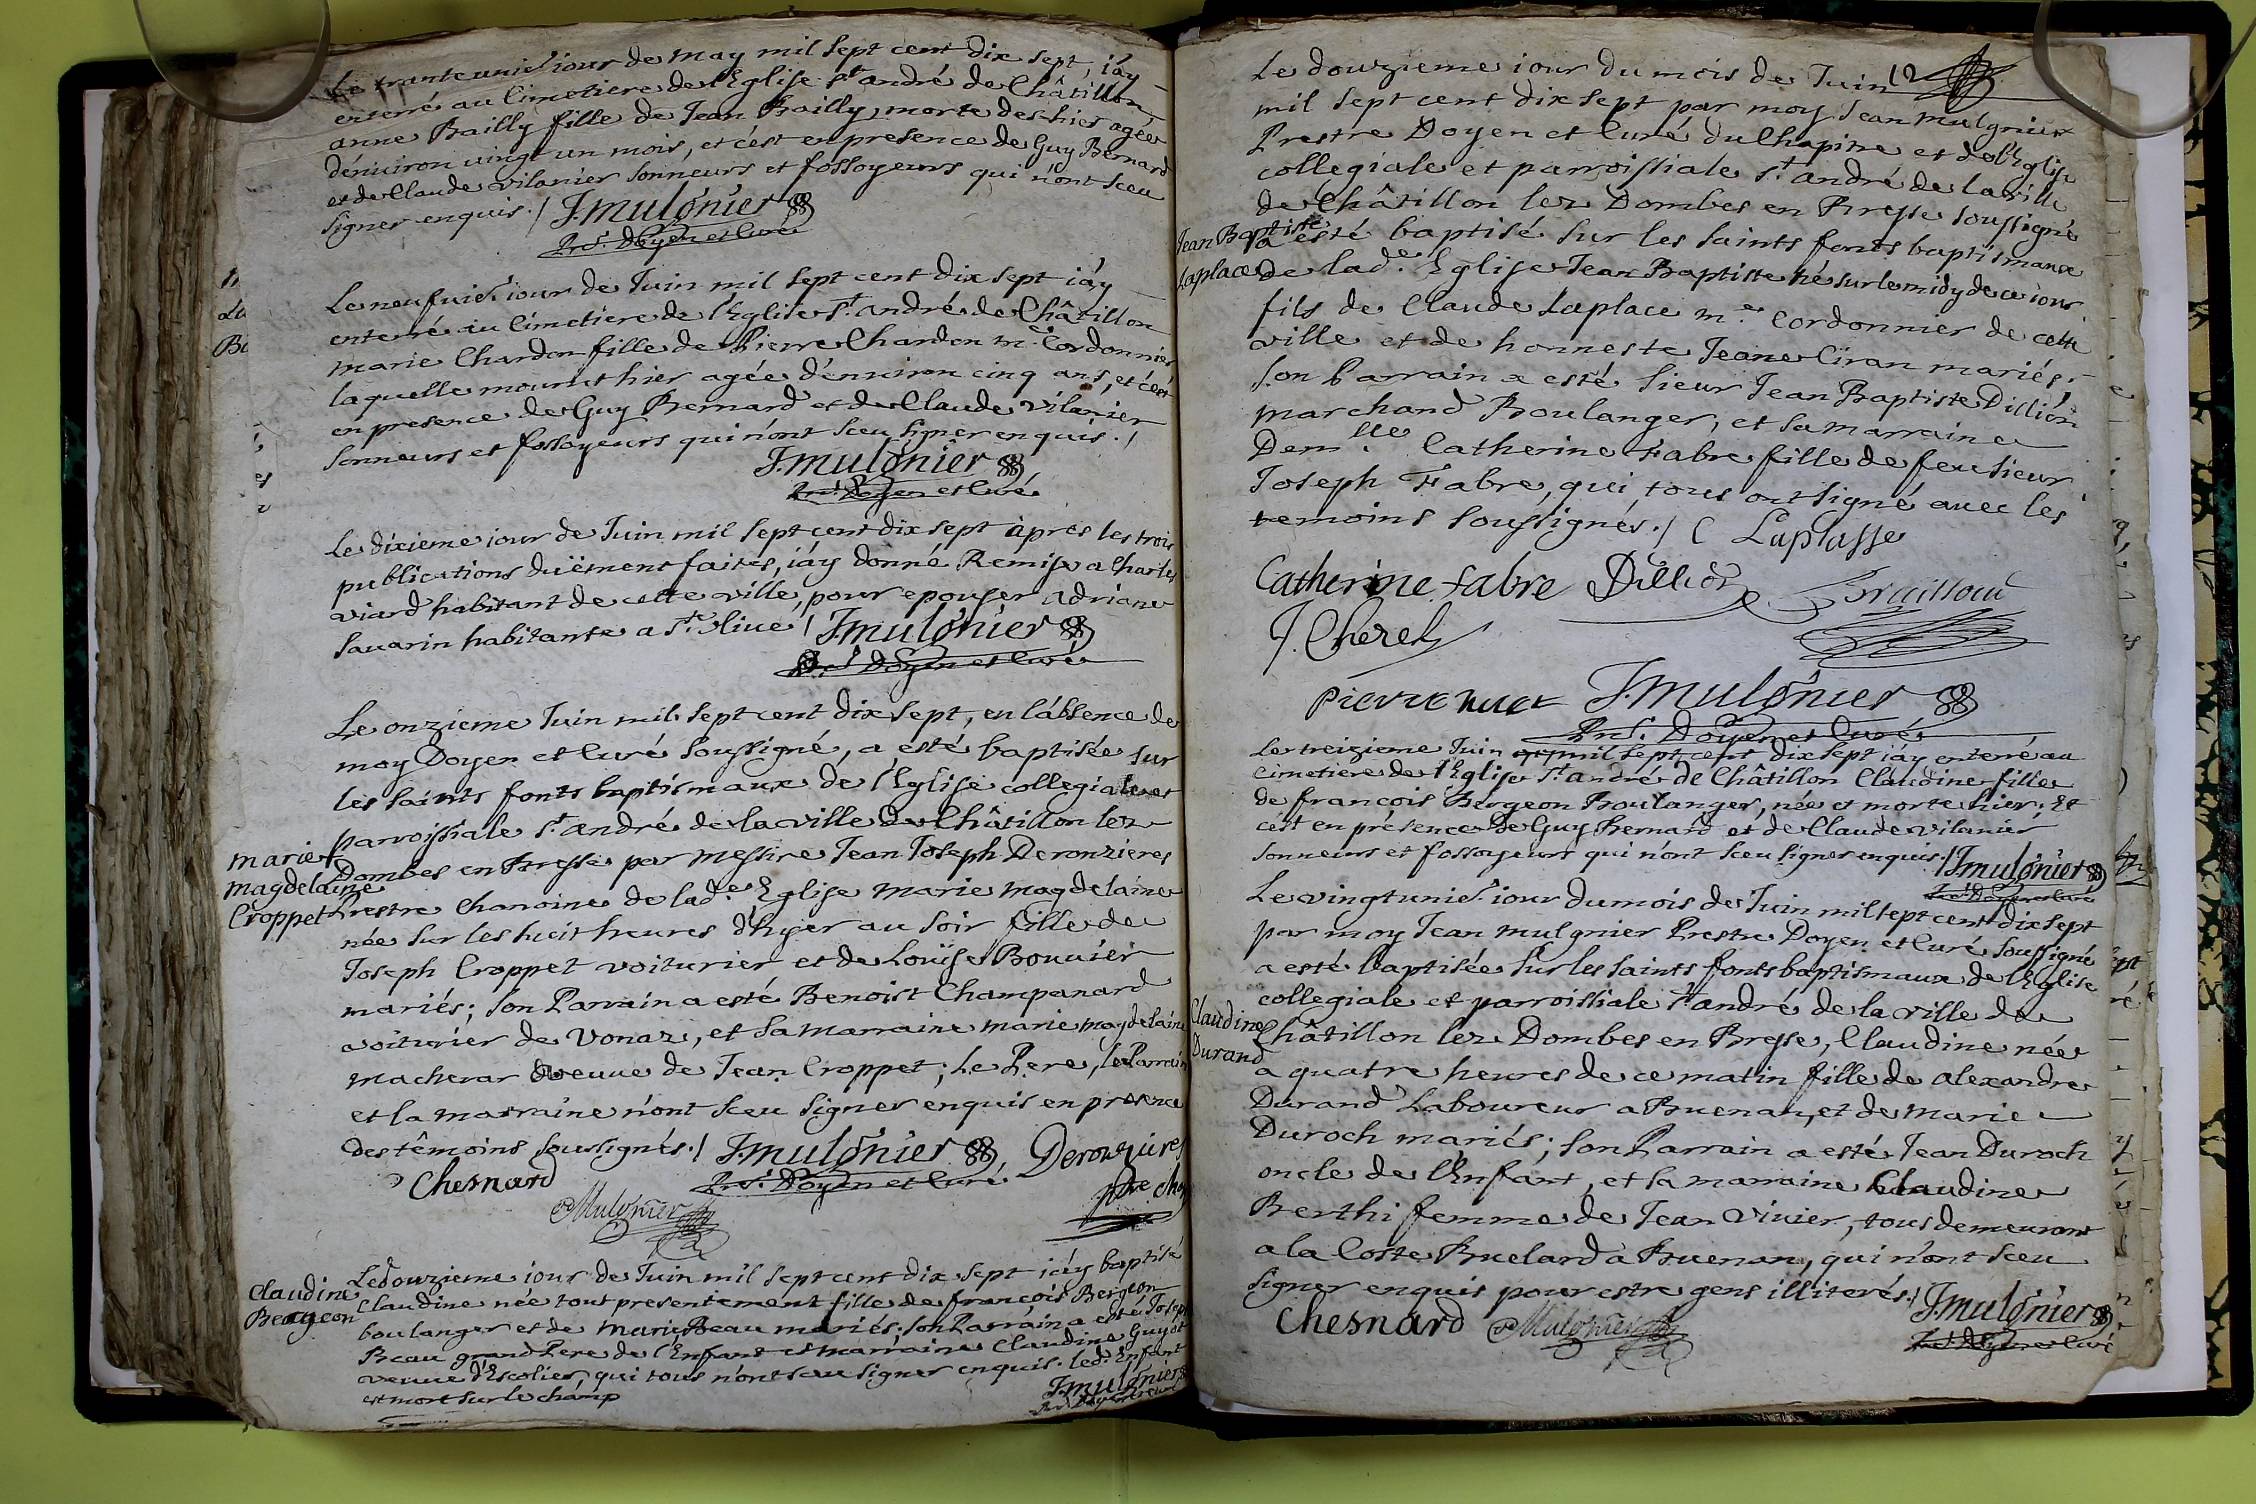 Le trante unie. iour de may mil sept cent dix sept, i'ay
enterré au Cimetiere de l'Eglise St. andré de Châtillon
anne Bailly fille de Jean Bailly, morte des hier agée
d'enuiron uingt un mois, et c'est en presence de Guy Bernard
et de Claude vilanier sonneurs et fossoyeurs qui n'ont sceu
signer enquis./ J. mulgnier
Pre. Doyen et Curé
Le neufuie. iour de Juin mil sept cent dix sept i'ay
enterré au Cimetiere de l'Eglise St. andré de Châtillon
marie Chardon fille de Pierre Chardon me. Cordonnier
laquelle mourut hier agée d'enuiron cinq ans, et c'est
en presence de Guy Bernard et de Claude vilanier
sonneurs et fossoyeurs qui n'ont sceu signer enquis./
J. mulgnier
Pre. Doyen et Curé
Le dixieme iour de Juin mil sept cent dix sept àprés les trois
publications duëment faites, i'ay donné Remise a Charles
viard habitant de cette ville, pour epouser adriane
sauarin habitante a St. Oliue./ J. mulgnier
Pre. Doyen et Curé
Le onzieme Juin mil sept cent dix sept, en l'absence de
moy Doyen et Curé soussigné, a esté baptisée sur
les saints fonts baptismaux de l'Eglise collegiale et
parroissiale St. andré de la ville de Châtillon lez
marie
Dombes en Bresse par messire Jean Joseph Deronzieres
magdelaine
Croppet
Prestre chanoine de lade. Eglise marie magdelaine
née sur les huit heures d'hyer au soir fille de
Joseph Croppet voiturier et de Loüise Bouuier
mariés; son Parrain a esté Benoist Champanard
voiturier de Vonaz, et sa marraine marie magdelaine
macherar veuue de Jean Croppet; le Pere, le Parrain
et la marraine n'ont sceu signer enquis en presence
des têmoins soussignés./ J. mulgnier Deronzieres
Chesnard Pre. Doyen et Curé. ptre cha
Mulgnier
Le douzieme iour de Juin mil sept cent dix sept i'ay baptisé
Claudine
Bergeon
Claudine née tout presentement fille de françois Bergeon
boulanger et de marie Beau mariés; son Parrain a esté Joseph
Beau grand Pere de l'Enfant et marraine Claudine Guyot
veuue d'Escolier, qui tous n'ont sceu signer enquis. led. Enfant
est mort sur le champ
J. mulgnier
Pre. Doyen et Curé
Le douzieme iour du mois de Juin 12
mil sept cent dix sept par moy Jean mulgnier
Prestre Doyen et Curé du Chapitre et de l'Eglise
collegiale et parroissiale St. andré de la ville
de Châtillon lez Dombes en Bresse soussigné
Jean Baptiste
Laplace
a esté baptisé sur les saints fonts baptismaux
de lade. Eglise Jean Baptiste né sur le midy de ce iour
fils de Claude Laplace me. Cordonnier de cette
ville et de honneste Jeane Ciran mariés;
son Parrain a esté sieur Jean Baptiste Dillion
marchand Boulanger, et sa marraine
Demlle. Catherine Fabre fille de feu sieur
Joseph Fabre, qui tous ont signé auec les
temoins soussignés./ C Laplasse
Catherine fabre Dillion
J. Cherel
Pierre J. mulgnier
Pre. Doyen et Curé
Le treizieme Juin mil sept cent dix sept i'ay enterré au
cimetiere de l'Eglise St. andré de Châtillon Claudine fille
de françois Bergeon Boulanger, née et morte hier; Et
c'est en présence de Guy Bernard et de Claude vilanier
sonneurs et fossoyeurs qui n'ont sceu signer enquis./ J. mulgnier
Pre. Doyen et Curé
Le vingt unie. iour du mois de Juin mil sept cent dix sept
par moy Jean mulgnier Prestre Doyen et Curé soussigné
a esté baptisée sur les saints fonts baptismaux de l'Eglise
collegiale et parroissiale St. andré de la ville de
Claudine
Durand
Châtillon lez Dombes en Bresse, Claudine née
a quatre heures de ce matin fille de alexandre
Durand Laboureur a Buenan, et de marie
Duroch mariés; son Parrain a esté Jean Duroch
oncle de l'Enfant, et sa marraine Claudine
Berthi femme de Jean Viuier, tous demeurant
a la Coste Bruelard a Buenan, qui n'ont sceu
signer enquis pour estre gens illiterés./ J. mulgnier
Chesnard Mulgnier Pre. Doyen et Curé